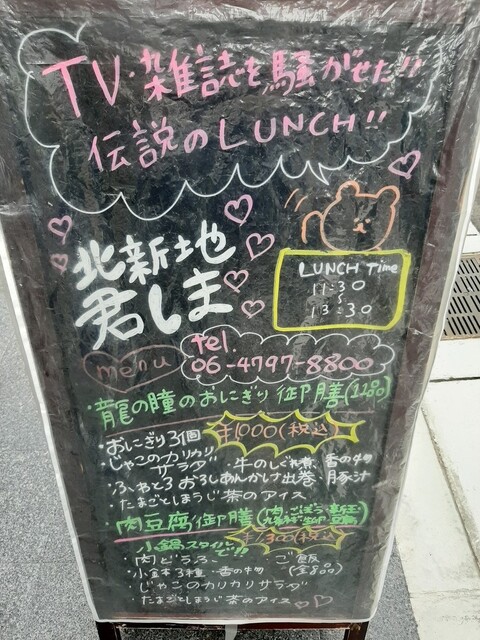 TV・雑誌を騒がせた!!
伝説のLUNCH!!
北新地
君しま
LUNCH Time
11:30
〜
13:30
menu
tel.
06-4797-8800
・龍の瞳のおにぎり御膳(11品)
¥1000(税込)
・おにぎり3個
・じゃこのカリカリサラダ・牛のしぐれ煮・香の物
・ふわとろおろしあんかけ出巻・豚汁
・たまごとしまうじ茶のアイス
・肉豆腐御膳(肉・ごぼう
¥1300(税込)
小鍋スタイルで!!
・肉どうふ・ご飯
・小鉢3種・香の物(全8品)
・じゃこのカリカリサラダ
・たまごとしまうじ茶のアイス